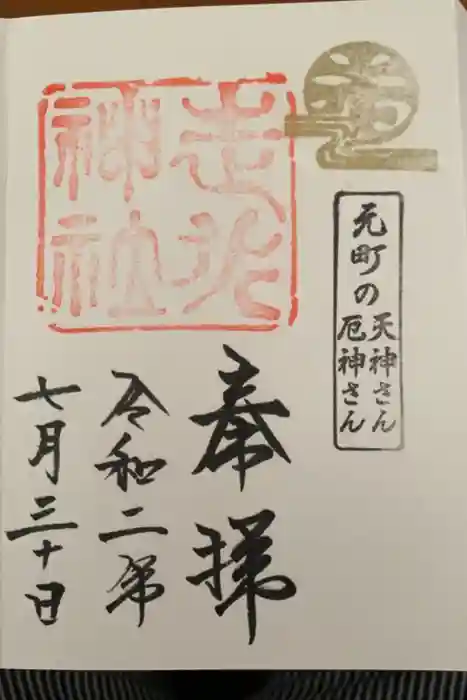 元町の天神さん
厄神さん
走水
神社
奉拝
令和二年
七月三十日